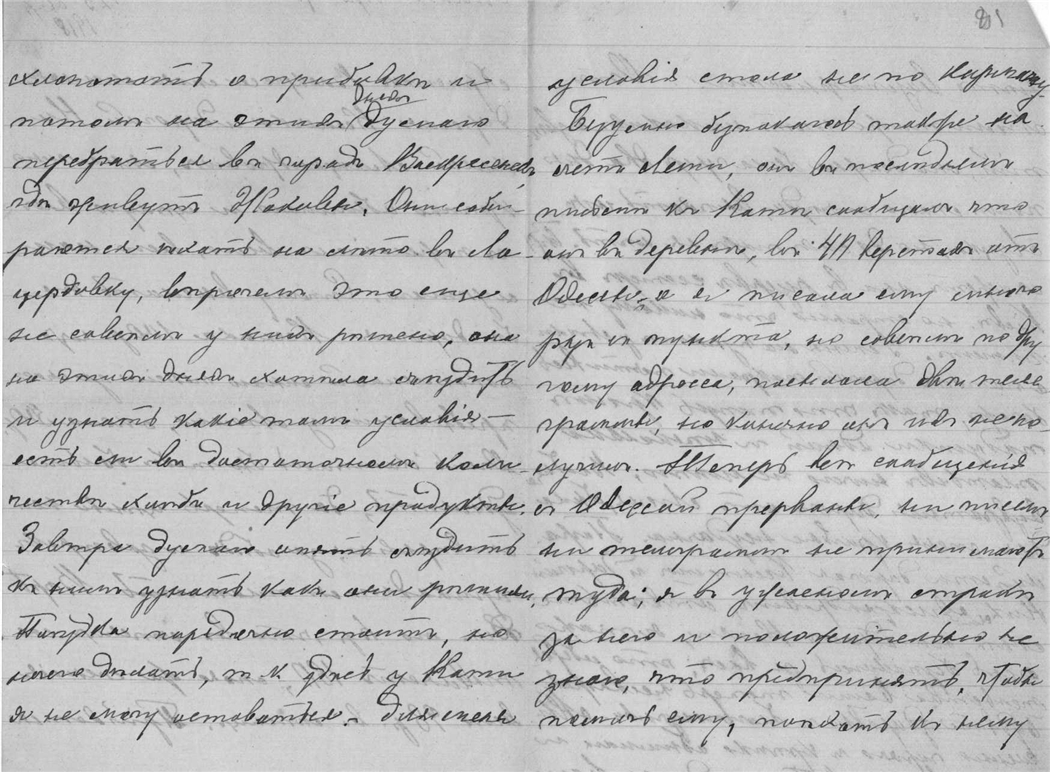 81
хлопотать о прибавки и
потомъ на этихъ дняхъ думаю
перебраться въ городъ Воскресенскъ
гдѣ живутъ Жаковы. Они соби-
раются ѣхать на лѣто въ
впрочемъ это еще
не совсемъ у нихъ рѣшено, она
на этихъ дняхъ хотѣла съѣздить
и узнать какіе тамъ условія —
есть ли въ достаточномъ коли-
чествѣ хлѣбъ и другіе продукты.
Завтра думаю опять съѣздить
къ нимъ узнать какъ они рѣшили,
Поѣздка порядочно стоитъ, но
нечего дѣлать, т. к. здѣсь у Кати
я не могу оставаться. Для меня
условія стола не по карману.
Безумно безпокоюсь также на-
счетъ Лени, онъ въ последнемъ
письмѣ къ Кати сообщалъ что
онъ въ деревнѣ, въ 40 верстахъ отъ
Одессы, а я писала ему много
разъ и пункта, но совсемъ по дру-
гому адресса, послала двѣ теле-
граммы, но конечно онъ ихъ не по-
лучилъ. Теперь все сообщенія
съ Одессой прерваны, ни писемъ
ни телеграммъ не принимаютъ
туда; я въ ужасномъ страхѣ
за него и положительно не
знаю, что предпринять, чтобы
помочь ему, поѣхать къ нему